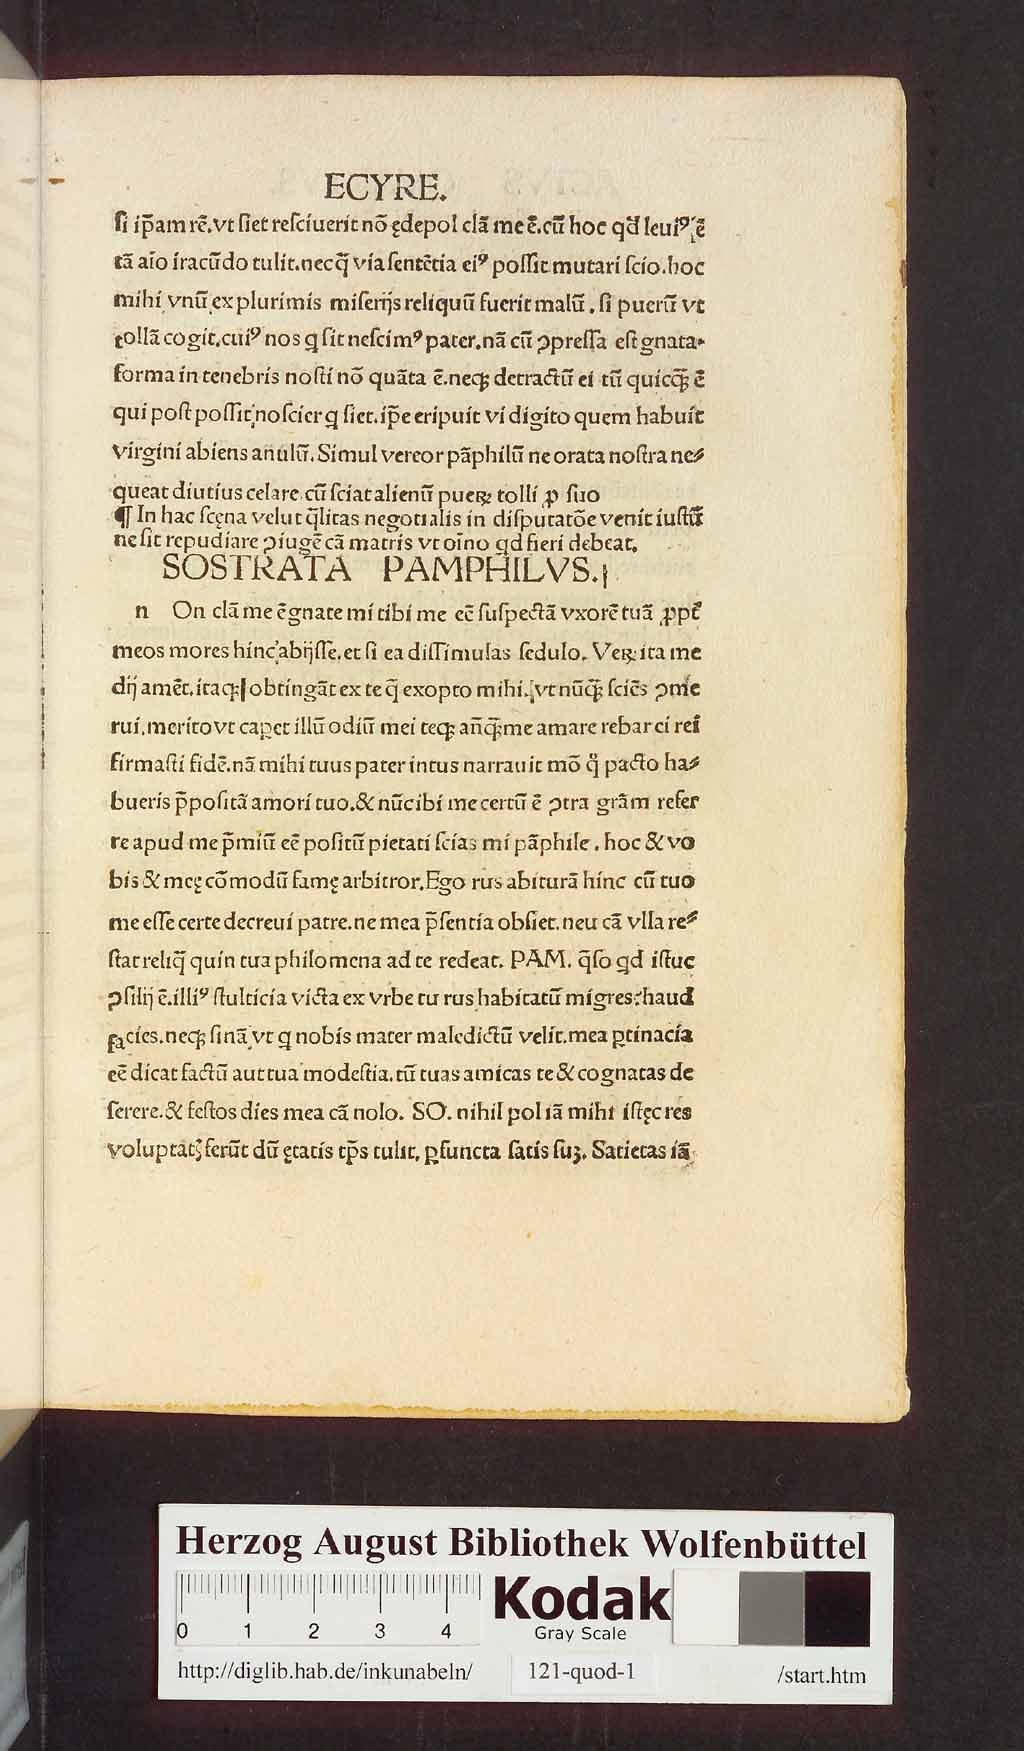 ECYRE.
ſi ip̄am rē. vt ſiet reſciuerit nō ędepol clā me ē. cū hoc qd̄ leuiꝰ ē
tā aīo iracūdo tulit. necq̄ via ſentētia eiꝰ poſſit mutari ſcio. hoc
mihi vnū ex plurimis miſerijs reliquū fuerit malū. ſi puerū vt
tollā cogit. cuiꝰ nos q ſit neſcimꝰ pater. nā cū ꝯpreſſa eſt gnata
forma in tenebris noſti nō quāta ē. neqꝫ detractū ei tū quicqꝫ ē
qui poſt poſſit noſcier q ſiet. ip̄e eripuit vi digito quem habuit
virgini abiens anulū. Simul vereor pāphilū ne orata noſtra ne⸗
queat diutius celare. cū ſciat alienū pueꝝ tolli ꝓ ſuo
¶ In hac ſcęna velut q̄litas negotialis in diſputatōe venit iuſtū
ne ſit repudiare ꝯiugē cā matris vt oīno qd fieri debeat.
SOSTRATA PAMPHILVS.
n On clā me ē gnate mi tibi me eē ſuſpectā vxorē tuā ꝓpt̄
meos mores hinc abijſſe. et ſi ea diſſimulas ſedulo. Veꝝ ita me
dij amēt. itaqꝫ obtingāt ex te q̄ exopto mihi. vt nūqꝫ ſciēs ꝯme
rui. merito vt capet illū odiū mei teqꝫ añqꝫ me amare rebar ei rei
firmaſti fidē. nā mihi tuus pater intus narrauit mō q̄ pacto ha⸗
bueris p̄poſitā amori tuo. & nūc ibi me certū ē ꝯtra grām refer
re apud me p̄miū eē poſitū pietati ſcias mi pāphile. hoc & vo
bis & meę cōmodū famę arbitror. Ego rus abiturā hinc cū tuo
me eſſe certe decreui patre. ne mea p̄ſentia obſiet. neu cā vlla re⸗
ſtat reliq̄ quin tua philomena ad te redeat. PAM. q̄ſo qd iſtuc
ꝯſilij ē. illiꝰ ſtulticia victa ex vrbe tu rus habitatū migres: haud
facies. neqꝫ ſinā vt q nobis mater maledictū velit. mea ꝑtinacia
eē dicat factū aut tua modeſtia. tū tuas amicas te & cognatas de
ſerere. & feſtos dies mea cā nolo. SO. nihil pol iā mihi iſtęc res
voluptatꝭ ferūt dū ętatis tp̄s tulit. ꝑfuncta ſatis ſuꝫ. Satietas iā
Herzog August Bibliothek Wolfenbüttel
0 1 2 3 4
Kodak
Gray Scale
http://diglib.hab.de/inkunabeln/ 121-quod-1 /start.htm